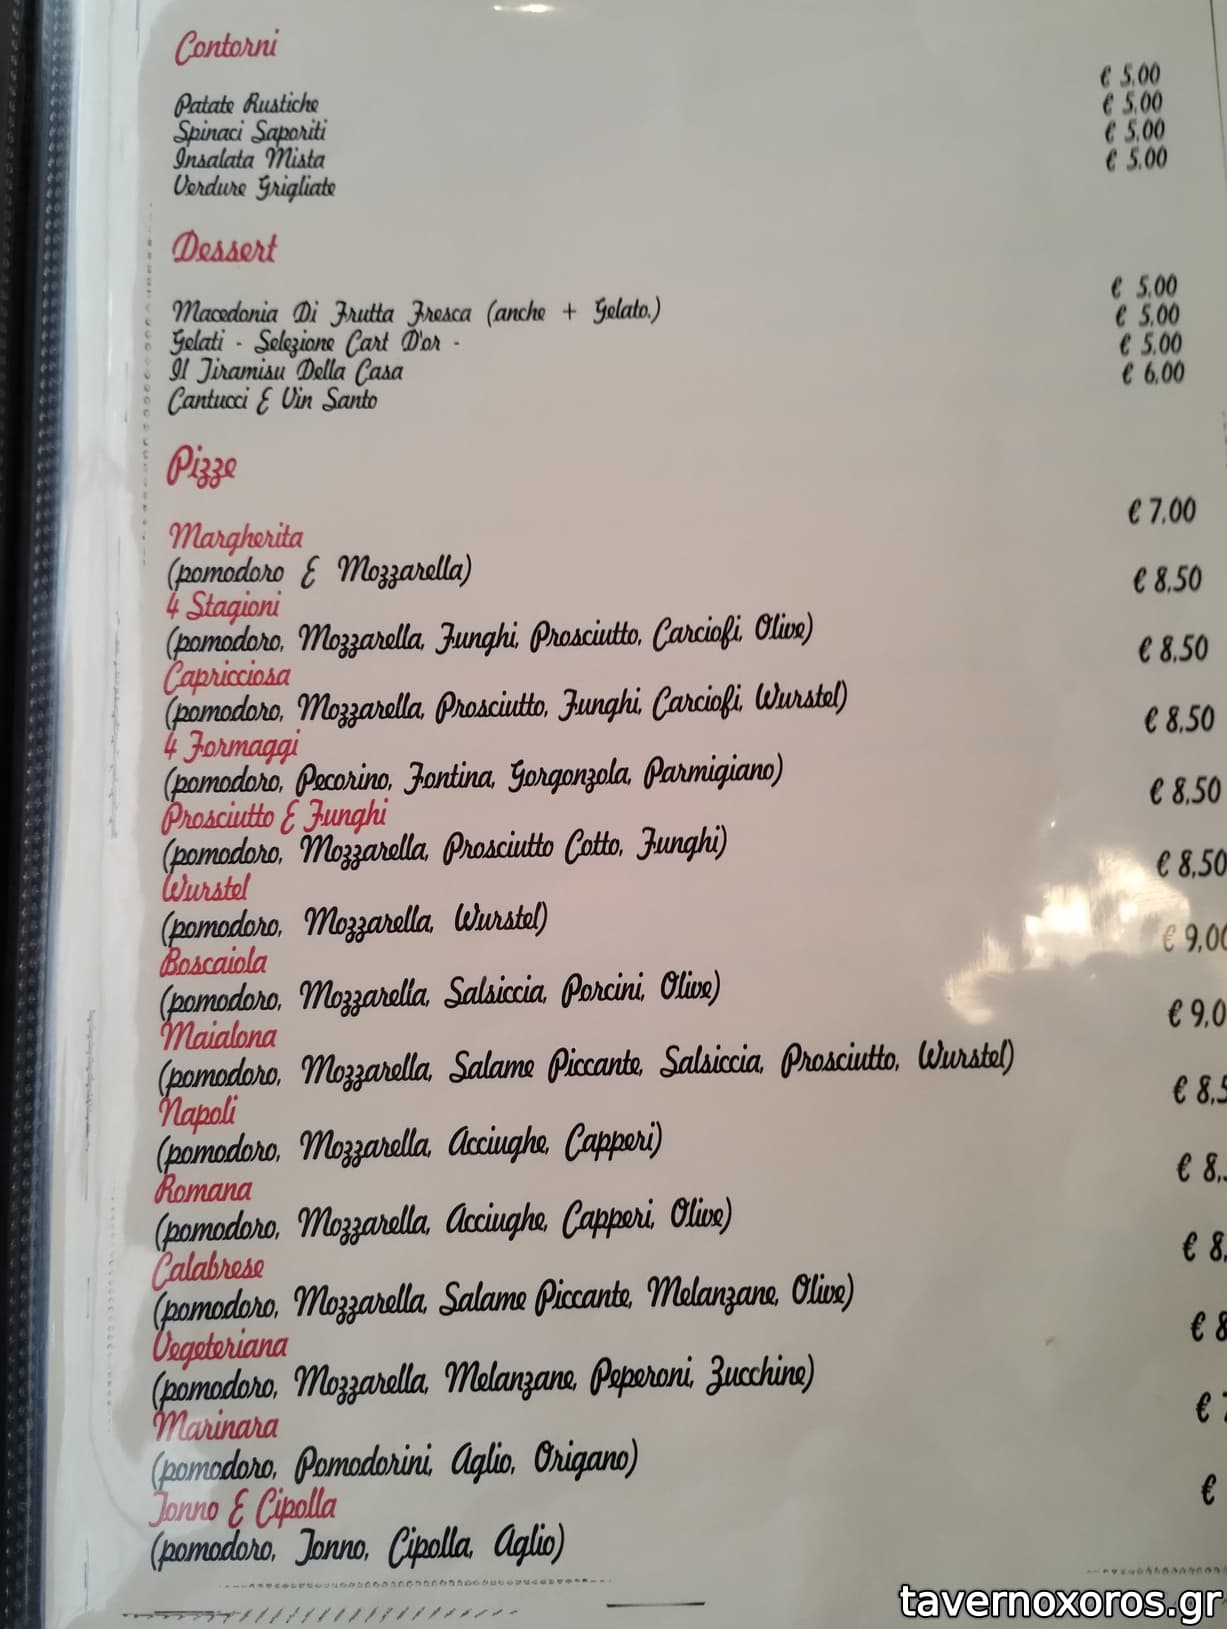 Contorni
Patate Rustiche € 5,00
Spinaci Saporiti € 5,00
Insalata Mista € 5,00
Verdure Grigliate € 5,00
Dessert
Macedonia Di Frutta Fresca (anche + Gelato.) € 5,00
Gelati - Selezione Cart D'or - € 5,00
Il Tiramisu Della Casa € 5,00
Cantucci E Vin Santo € 6,00
Pizze
Margherita € 7,00
(pomodoro E Mozzarella)
4 Stagioni € 8,50
(pomodoro, Mozzarella, Funghi, Prosciutto, Carciofi, Olive)
Capricciosa € 8,50
(pomodoro, Mozzarella, Prosciutto, Funghi, Carciofi, Wurstel)
4 Formaggi € 8,50
(pomodoro, Pecorino, Fontina, Gorgonzola, Parmigiano)
Prosciutto E Funghi € 8,50
(pomodoro, Mozzarella, Prosciutto Cotto, Funghi)
Wurstel € 8,50
(pomodoro, Mozzarella, Wurstel)
Boscaiola € 9,00
(pomodoro, Mozzarella, Salsiccia, Porcini, Olive)
Maialona € 9,0
(pomodoro, Mozzarella, Salame Piccante, Salsiccia, Prosciutto, Wurstel)
Napoli € 8,5
(pomodoro, Mozzarella, Acciughe, Capperi)
Romana € 8,
(pomodoro, Mozzarella, Acciughe, Capperi, Olive)
Calabrese € 8,
(pomodoro, Mozzarella, Salame Piccante, Melanzane, Olive)
Vegeteriana € 8
(pomodoro, Mozzarella, Melanzane, Peperoni, Zucchine)
Marinara €
(pomodoro, Pomodorini, Aglio, Origano)
Tonno E Cipolla €
(pomodoro, Tonno, Cipolla, Aglio)
tavernoxoros.gr